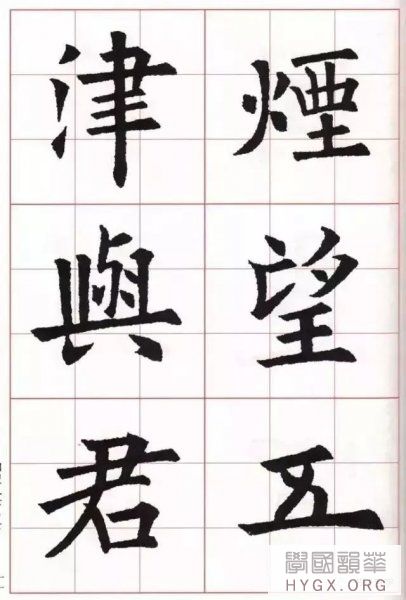 煙望五
津與君
華韻國學
HYGX.ORG